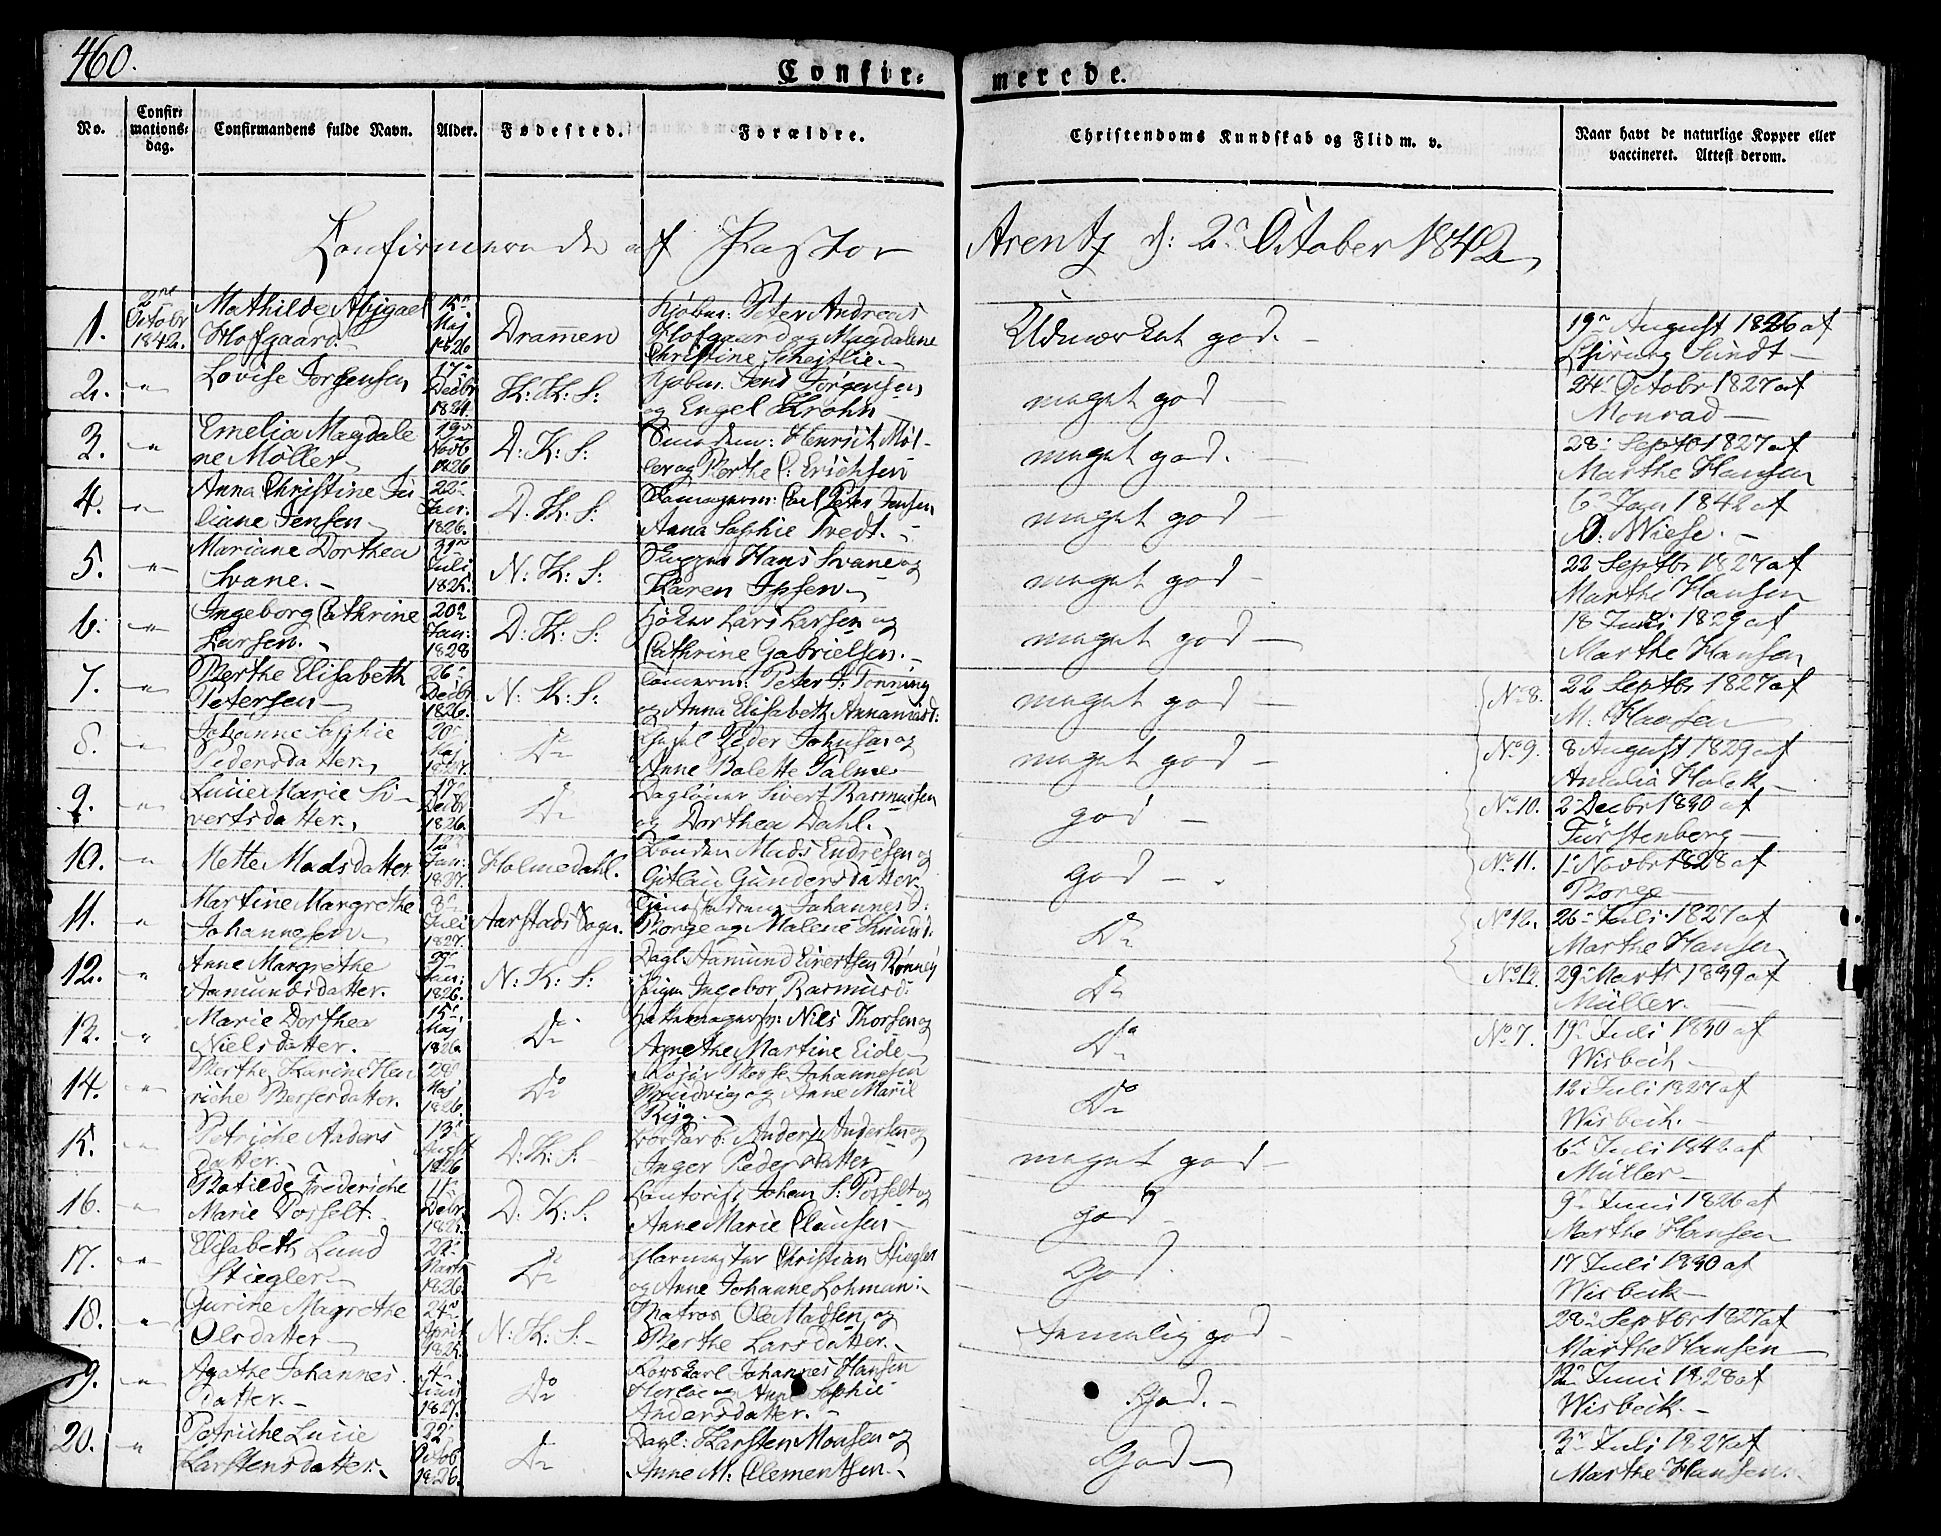 460.
Confir=
merede.
No.
Confir=
mations=
dag.
Confirmandens fulde Navn.
Alder.
Fødested.
Forældre.
Christendoms Kundskab og Flid m. v.
Naar havt de naturlige Kopper eller
vaccineret. Attest derom.
Confirmerede af Pastor
Arentz d: 2n October 1842
1. 2n October 1842. Mathilde Abigael Hofgaard. 15n Maj 1826 Drammen Kjøbm: Peter Andreas Hofgaard og Magdalene Christine Schejtlie. Udmærket god. 19n August 1826 af Sundt
2. " Lovise Jørgensen 17n Decbr K: K: S: Kjøbm. Jens Jørgensen og Engel Krohn meget god 24n Octobr 1827 af Monrad
3. " Emelia Magdalene Møller 19n Novb 1826 D: K: S: Henrich Møller og Berthe C: Erichsen meget god. 28n Septbr 1827 af Marthe Hansen
4. " Anna Christine Juliane Jensen 22n Jan: 1826. D: K: S: Carl Peter Jensen Anna Sophie Tvedt. meget god 6n Jan 1842 af O. Wiese.
5. " Mariane Dorthea Svane. 31n Juli 1825. N: K: S: Hans Svane og Karen Ipsen meget god 22 Septbr 1827 af Marthe Hansen
6. " Ingeborg Cathrine Larsen. 20n Jan: 1828 D: K: S: Høker Lars Larsen og Cathrine Gabrielsen. meget god 18 Juni 1829 af Marthe Hansen
7. " Berthe Elisabeth Petersen 26n Decbr 1826. N: K: S: Tømerm: Peter J: Tønning og Anna Elisabeth Annanisd: meget god No 8. 22 Septbr 1827 af M. Hansen
8. " Johanne Sophie Pedersdatter, 20n Maj 1827. Do Peder Johnsen og Anne Bolette Palme meget god No 9. 8 August 1829 af Amalia Holck
9. " Lucie Marie Sivertsdatter, 17n Decbr 1826. Do Dagløner Sivert Rasmusen og Dorthea Dahl. god No 10. 2 Decbr 1830 af Fürstenberg
10. " Mette Madsdatter Jan: 1827. Holmedahl. Bonden Mads Endresen og Gitlau Gundersdatter. god No 11. 1n Novbr 1828 af Borge
11. " Martine Margrethe Johannesen 8n Juli 1827. Aarstads Sogn. Johannes S: Borge og Malene Knudsd. Do No 12. 26n Juli 1827 af Marthe Hansen
12. " Anne Margrethe Aamundsdatter. Jan: 1826. N: K: S: Dagl. Aamund Einertsen Rønnev Pigen Ingebor Rasmusd: Do No 13. 29n Marts 1839 af Müller.
13. " Marie Dorthea Nielsdatter. 15n Maj 1826. Do Hattemagersv: Niels Thorsen og Agnethe Martine Eide Do No 7. 19n Juli 1830 af Wisbech
14. " Berthe Karine Henriche Bersersdatter. 28n Maj 1826. Do Johannesen og Anne Marie Ryg. Do 12n Juli 1827 af Wisbech.
15. " Petriche Andersdatter. 13n August 1826 D: K: S. Anders Andersen og Inger Pedersdatter meget god 6n Juli 1842 af Müller
16. " Batilde Frederiche Marie Posselt. Debr. 1825. D: K: S. Contorist Johan S: Posselt og Anne Marie Clausen god 9n Juni 1826 af Marthe Hansen
17. " Elisabeth Lund Stiegler Marts 1826. Do Christian Stiegler og Anne Johanne Lohman: God. 17 Juli 1830 af Wisbeck
18. " Gurine Magrethe Olsdatter 24n April 1825. N: K: S. Matros Ole Madsen og Berthe Larsdatter. temelig god 28n Septbr 1827 af Marthe Hansen
19. " Agathe Johannesdatter. 4n Juni 1827. Do Johannes Hansen og Anne Sophie Andersdatter. God. 12n Juni 1828 af Wisbeck.
20. " Petriche Lucie Karstensdatter. 22n Octob 1826. Do Dagl: Karsten Monsen og Anne M: Clementsen. God 3n Juli 1827 af Marthe Hansen.